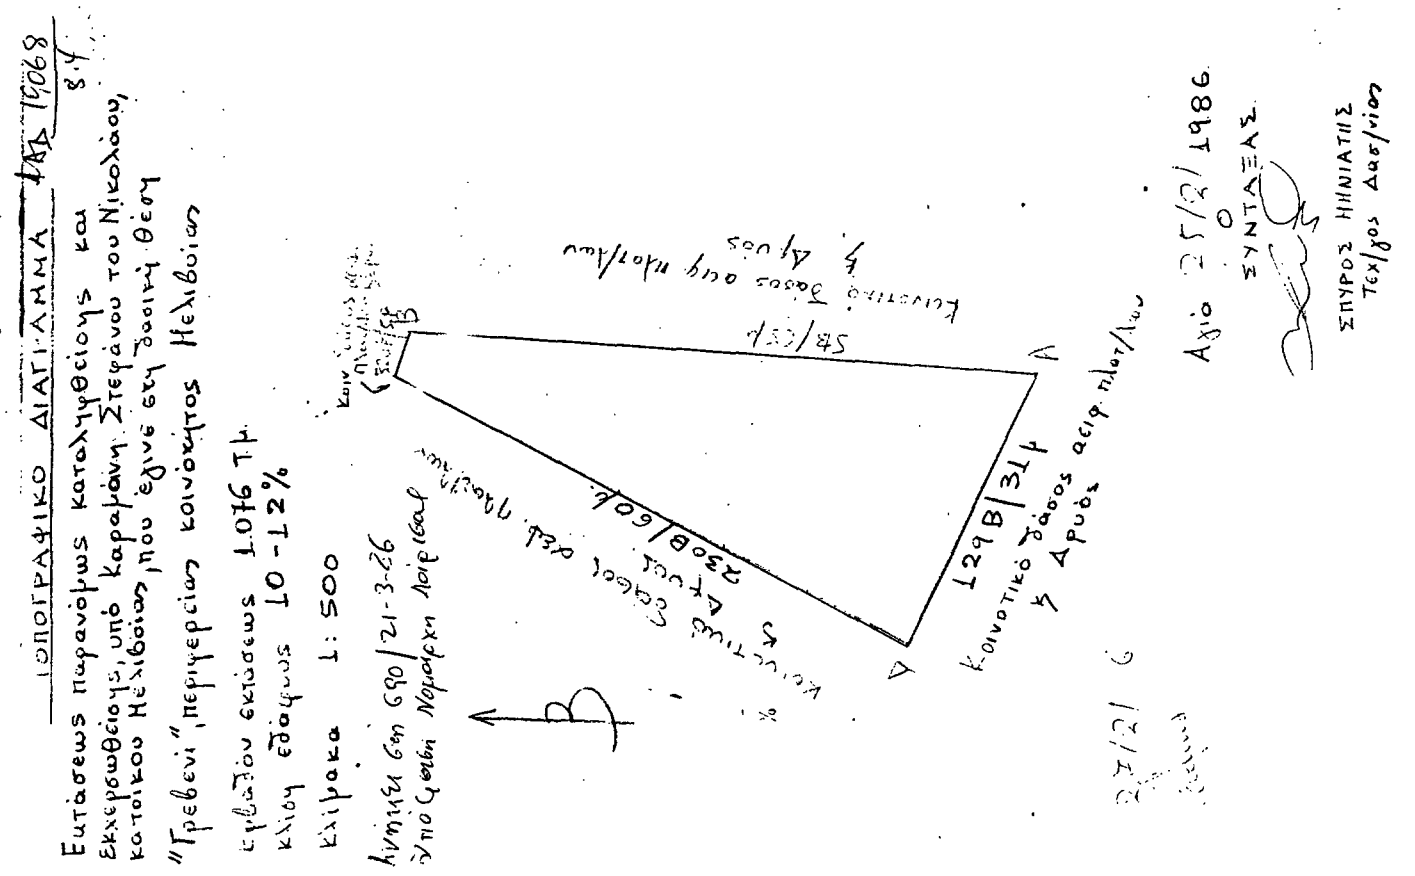 ΤΟΠΟΓΡΑΦΙΚΟ ΔΙΑΓΡΑΜΜΑ
19068
Εκτάσεως παρανόμως καταληφθείσης και
εκχερσωθείσης, υπό Καραμάνη Στεφάνου του Νικολάου,
κατοίκου Μελιβοίας, που έγινε στη δασική θέση
"Γρεβενί", περιφερείας κοινότητος Μελιβοίας
εμβαδού εκτάσεως 1.076 Τ.μ.
κλίση εδάφους 10-12%
κλίμακα 1:500
690/21-3-86
Β
Β
Κοινοτικό δάσος αειφ. πλατ/λων
ξ. Δρυός
5Β/65μ
Α
230Β/60μ.
Κοινοτικό δάσος αειφ. πλατ/λων
ξ Δρυός
129Β/31μ
Δ
Κοινοτικό δάσος αειφ. πλατ/λων
ξ Δρυός
Αγιά 25/2/1986
Ο
ΣΥΝΤΑΞΑΣ
ΣΠΥΡΟΣ ΜΗΝΙΑΤΗΣ
Τεχ/γος Δασ/νίας